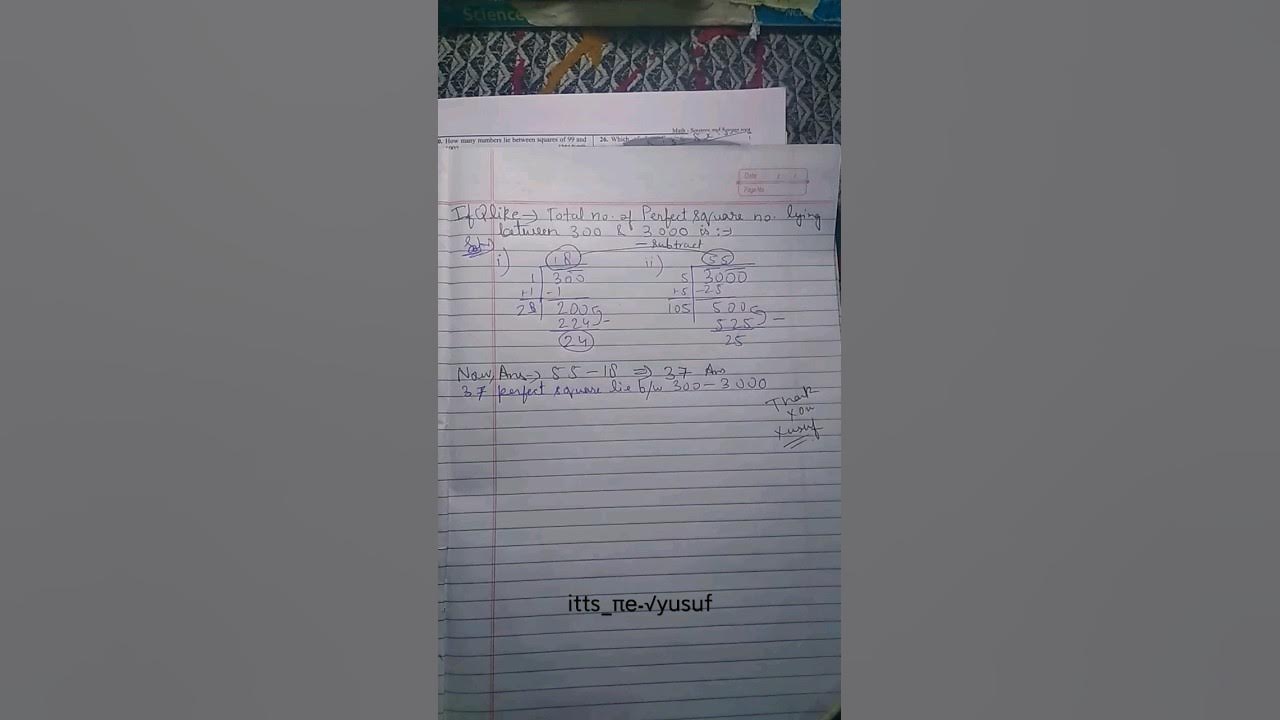 Science
Math - Squares and Square root
How many numbers lie between squares of 99 and
26. Which
Date
Page No
If Q like → Total no. of Perfect square no. lying
between 300 & 3000 is :→
Sol:
— Subtract
i) 18 ii) 55
1 300 5 3000
+1 -1 +5 -25
28 200 105 500
224 — 525 —
24 25
Now, Ans → 55 - 18 ⇒ 37 Ans
37 perfect square lie b/w 300 - 3000
Thank
you
Yusuf
itts_πe-√yusuf